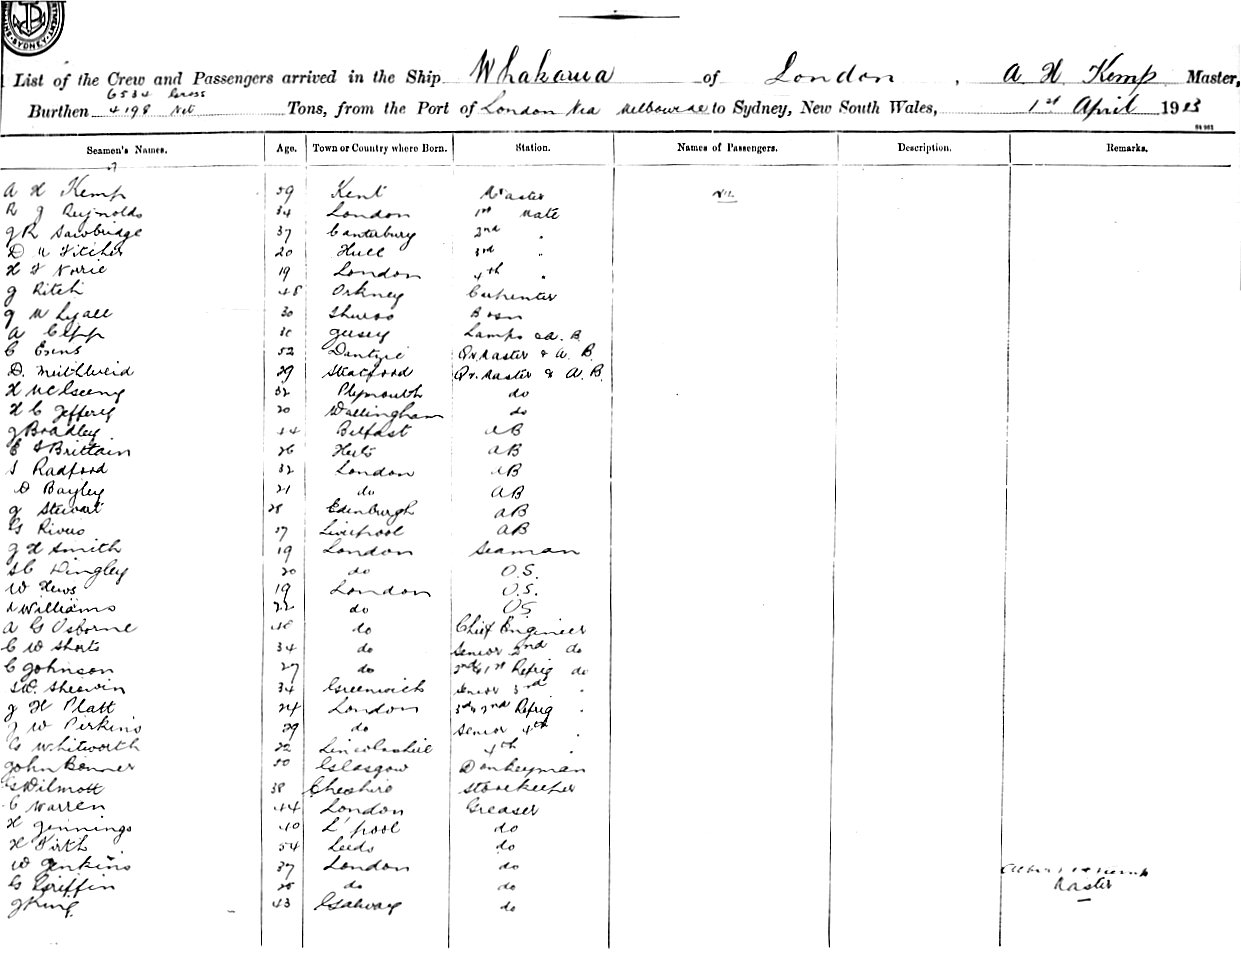 SYDNEY
List of the Crew and Passengers arrived in the Ship Whakarua of London, A H Kemp Master,
6534 Gross
Burthen 4198 Net Tons, from the Port of London Via Melbourne to Sydney, New South Wales, 1st April 1913
Seamen's Names. Age. Town or Country where Born. Station. Names of Passengers. Description. Remarks.
A H Kemp 59 Kent Master Nil
R J Reynolds 34 London 1st Mate
J R Sawbridge 37 Canterbury 2nd "
D 20 Hull 3rd "
H F Norrie 19 London 4th "
J Ritch 48 Orkney Carpenter
J W Lyall 30 Bosn
A Clapp Lamps & A. B.
C Evans 52 Dantzic Qr. Master & A. B.
D. 29 Stratford Qr. Master & A. B.
H 32 Plymouth do
H C Jeffery 20 Wallingham do
J Bradley 34 Belfast AB
E F Brittain 26 Herts AB
S Radford 32 London AB
D Bayley 21 do AB
J Stewart 28 Edinburgh AB
G Rivers 57 Liverpool AB
J H Smith 19 London Seaman
S C Dingley 20 do O.S.
W Hews 19 London O.S.
Williams 22 do OS
A G Osborne 48 do Chief Engineer
C W Shorts 34 do Senior 2nd do
C Johnson 27 do 2nd & 1st Refrig do
S D. Sherwin 34 Greenwich Senior 3rd "
J H Platt 24 London 3rd & 2nd Refrig "
J W Perkins 29 do Senior 4th "
G Whitworth 22 Lincolnshire 4th "
John Bonner 50 Glasgow Donkeyman
G Wilmott 38 Cheshire Storekeeper
C Warren 44 London Greaser
H Jennings 40 L'pool do
H Firth 54 Leeds do
W Jenkins 37 London do
G Griffin 25 do do
J King 43 Galway do
Kemp
Master